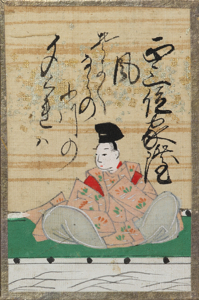 正三位家隆
風
そよく
ならの
小川の
夕くれハ